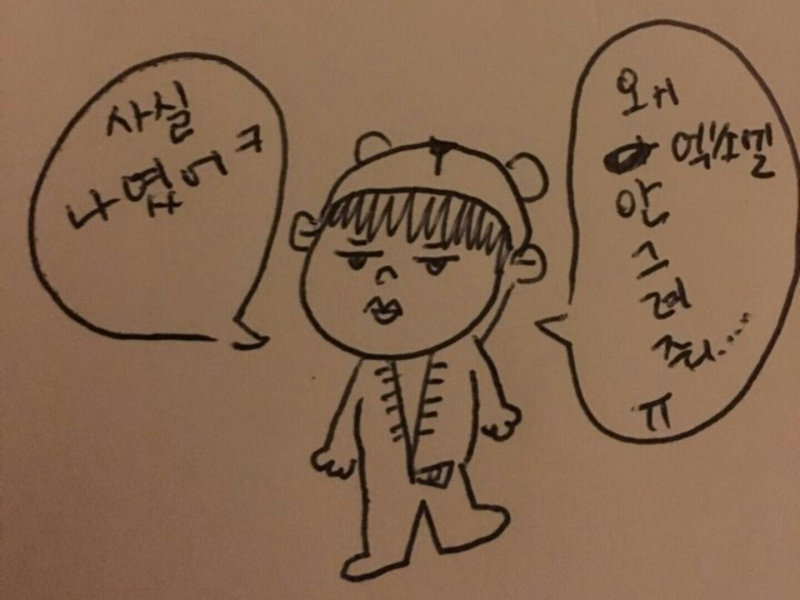 사실
나였어ㅋ
왜
엑소멜
안
스
려
줘....
ㅠ